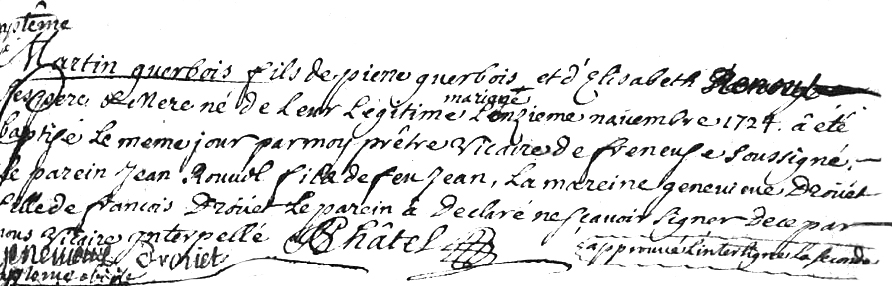 aptême
Martin guerbois fils de pierre guerbois et d'Elisabeth
ses pere & Mere né de leur Légitime mariage L'onzieme naivembre 1724. â été
baptisé Le meme jour par moy prêtre Vicaire de freneuse soussigné.
Le parein Jean Rouvel fils de feu Jean, La mareine genevieve Drouet
fille de francois Droüet Le parein â Declaré ne scavoir signer de ce par
nous Vicaire interpellé Châtel
genevieve Drouiet approuvé l'interligne la seconde